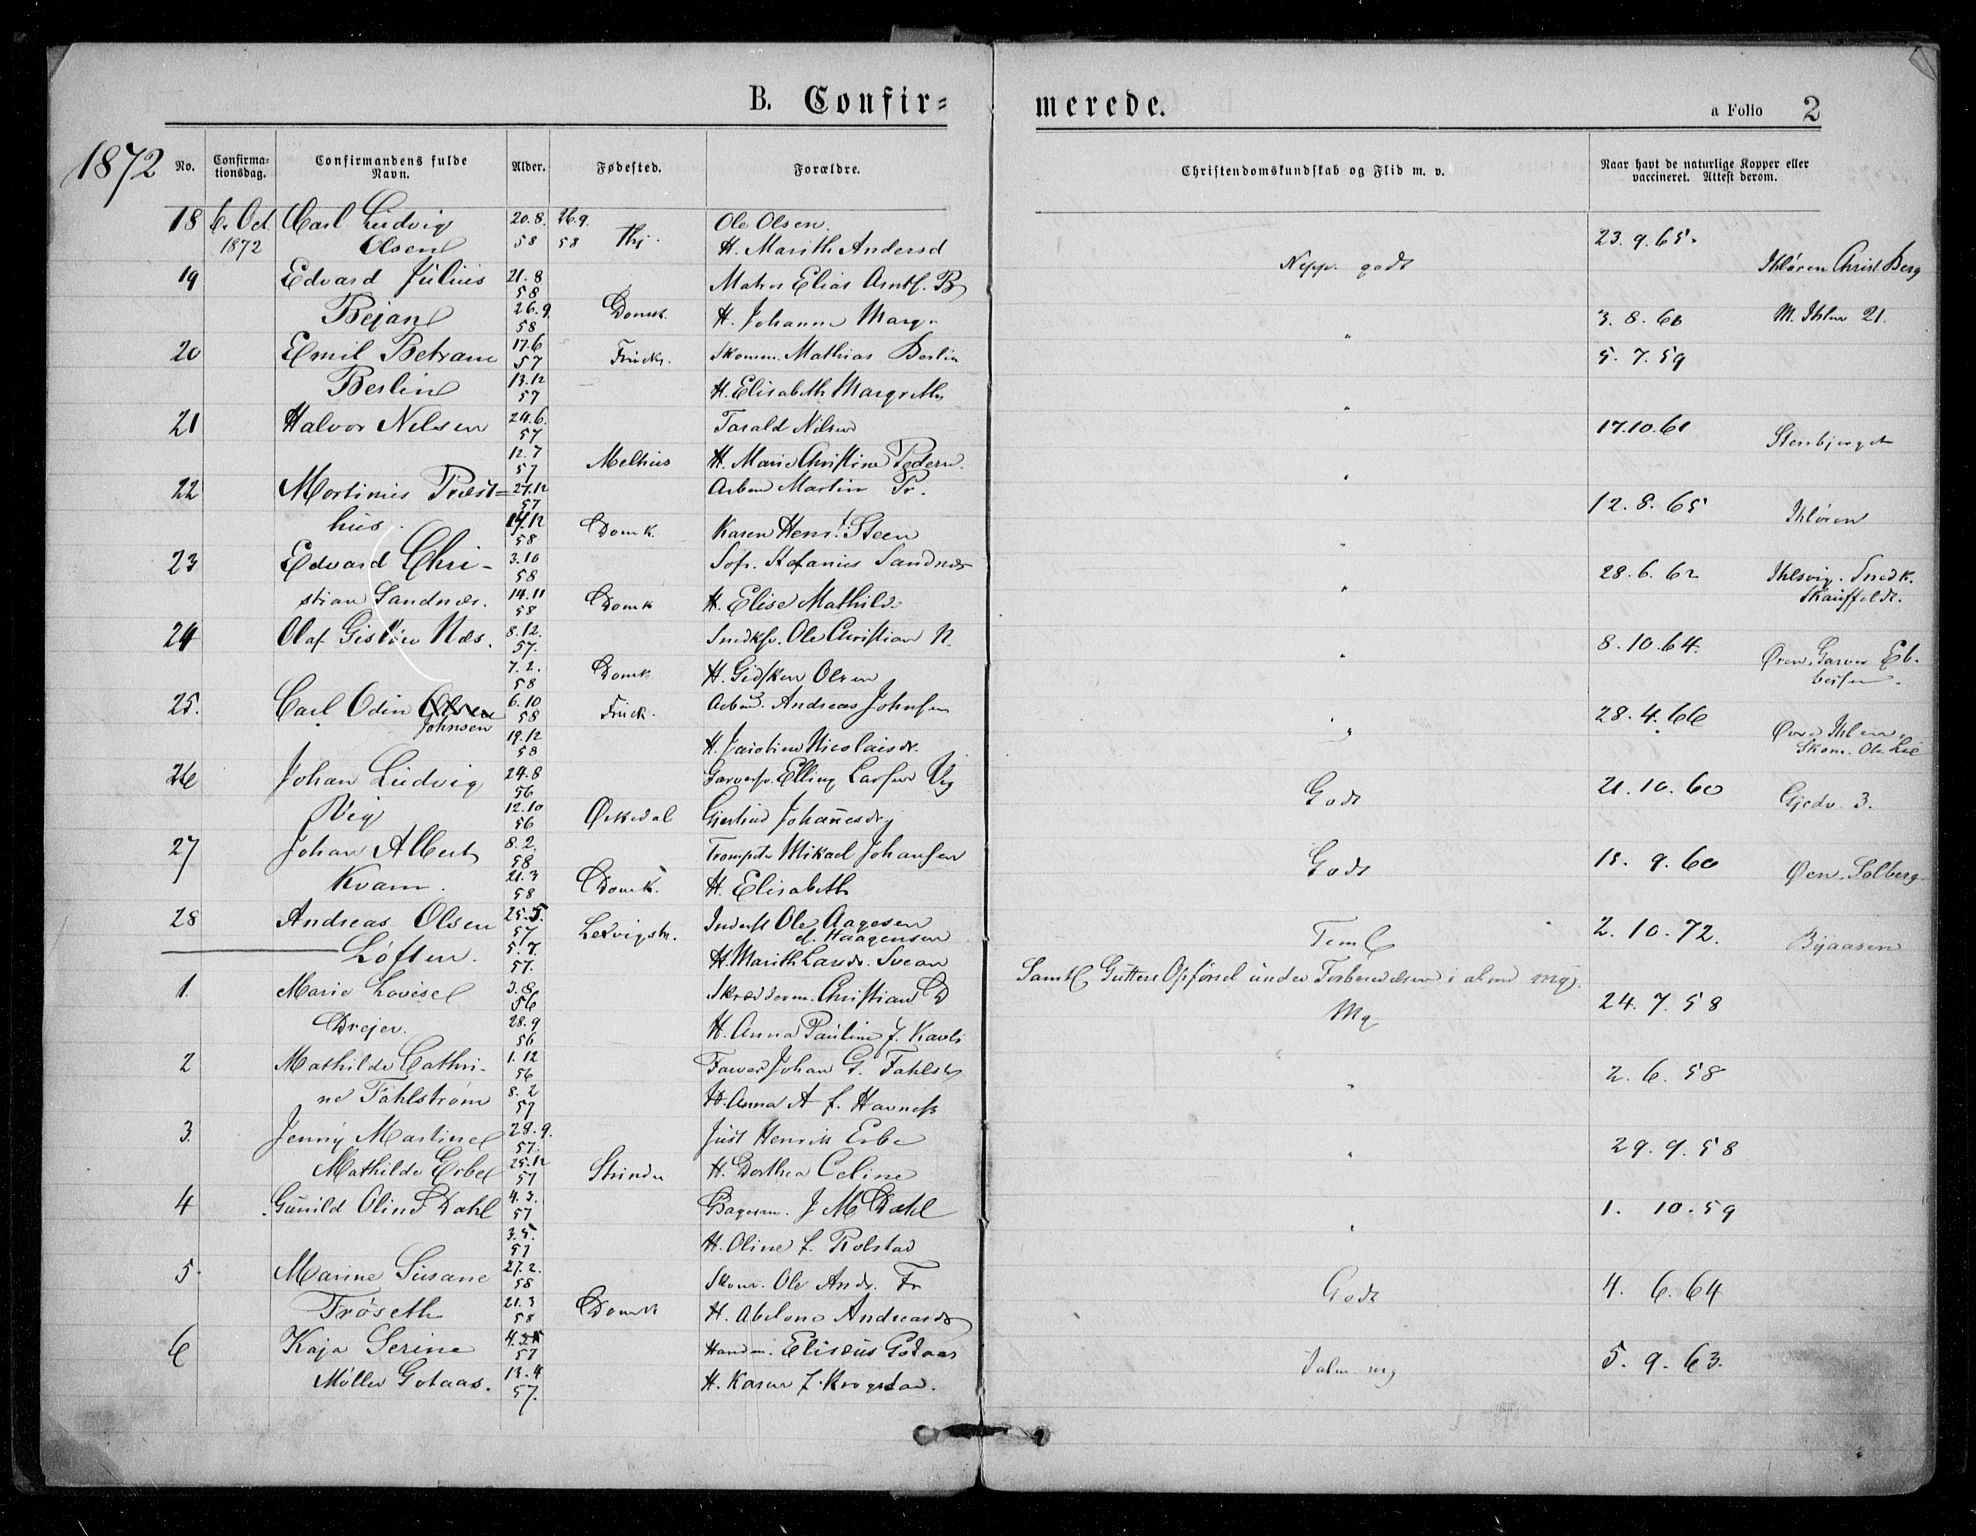 B. Confir-
merede.
a Folio 2
1872
No.
Confirma-
tionsdag.
Confirmandens fulde
Navn.
Alder.
Fødested.
Forældre.
Christendomskundskab og Flid m. v.
Naar havt de naturlige Kopper eller
vaccineret. Attest derom.
18 6. Oct. Carl Ludvig 20.8. 26.9. Ole Olsen
1872 Olsen 58 58 Thj. H. Marith Andersd 23.9.65.
Nepp. godt Ihløren Christ Berg
19 Edvard Julius 21.8 Matros Elias Arntf. B
58
Bejan 26.9. Domk. H. Johanne Marg. 3.8.60 M. Ihlen 21.
58 "
20 Emil Betram 17.6 Fruek. Skomm. Mathias Berlin 5.7.59
57
Berlin 13.12 H. Elisabeth Margreth
57 "
21 Halvor Nilsen 24.6. Tarald Nilsen 17.10.61 Stenbjerget
57
12.7 Melhus H. Marie Christine Pedersd.
57 "
22 Mortinus Præst= 27.12 Arbm Martin Pr. 12.8.65 Ihløren
57
hus. 14.12 Domk. Karen Hens. f. Steen
58 "
23 Edvard Chri- 3.10 Sofr. Stefanius Sandnæs 28.6.62 Ihlsvig. Snedk.
58 " Skauffeldt.
stian Sandnæs. 14.11 Domk H. Elise Mathilde
58
24 Olaf Næs. 8.12. Snedksv. Ole Christian N. 8.10.64. Øren, Garver Eb-
57. besen.
7.2. Domk H. Gidsken Olsen
58 "
25. Carl Odin Olsen 6.10 Fruek. Arbm. Andreas Johnsen 28.4.66 Øvre Ihlen,
Johnsen 58 Skom. Ole Lie
19.12 H. Nicolaisdr. "
58
26 Johan Ludvig 24.8 Garversv. Elling Larsen Vig 21.10.60 Gjedv. 3.
56 Godt
Vig 12.10 Orkedal Gjertrud Johannesdr
56
27 Johan Albert 8.2. Trompeter Mikael Johansen 15.9.60 Øren, Solberg.
58 Godt
Kvam. 21.3 Domk. H. Elisabeth
58
28 Andreas Olsen 25.5. Lexvigstr. Inderst Ole Aagesen 2.10.72. Byaasen
57 Haagensen Teml
Løften. 5.7. H. Marith Larsdr. Svean
57.
Samtl Gutters Opførsel under Forberedelsen i alm mg.
1. Marie Lovise 3.8 Skræderm. Christian D 24.7.58
56 Mg
Drejer. 28.9 H. Anna Pauline f. Kavli
56
2 Mathilde Cathri- 1.12 Farver Johan G. Fahlstr 2.6.58
56 "
ne Fahlstrøm 8.2 H. Anna A f. Havneß
57
3. Jenny Martine 28.9. Just Henrik Erbe 29.9.58
57. "
Mathilde Erbe 25.12 Strinden H. Dorthea Celine
57
4 Gunild Oline Dahl 4.3. Bagerm. J M Dahl 1.10.59
57 "
3.5. H. Oline f. Rolstad
57
5. Marine Susane 27.2. Skom. Ole Andr. Fr 4.6.64
58 Godt
Frøseth 21.3 Domk H. Abelone Andreasdr
58
6 Kaja Serine 4.3 Handm. Elisæus Gotaas 5.9.63.
57 Talm. mg
Møller Gotaas. 13.4 H. Karen f. Krogstad.
57.